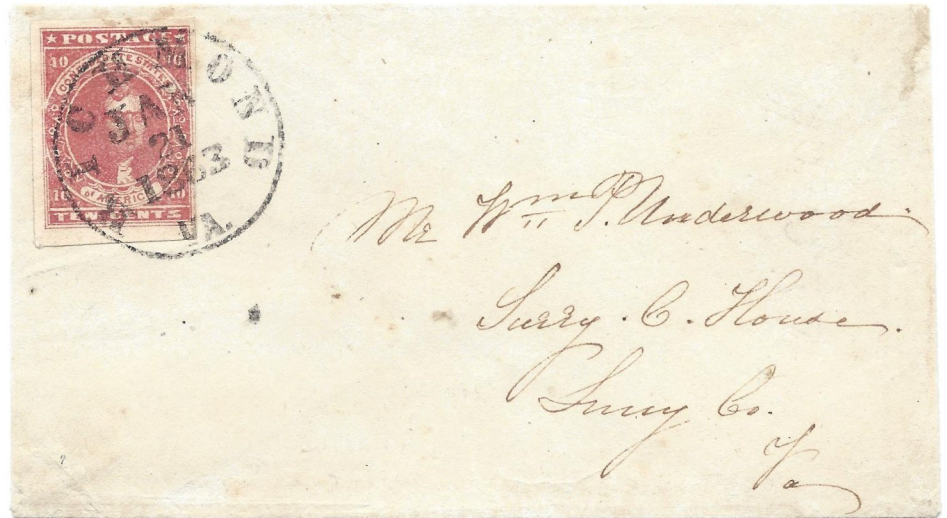 ★ POSTAGE ★
10 10
CONFEDERATE STATES
OF AMERICA
10 10
TEN CENTS
RICHMOND
JAN
21
1863
VA.
Mr Wm P. Underwood
Surry. C. House.
Surry Co.
Va